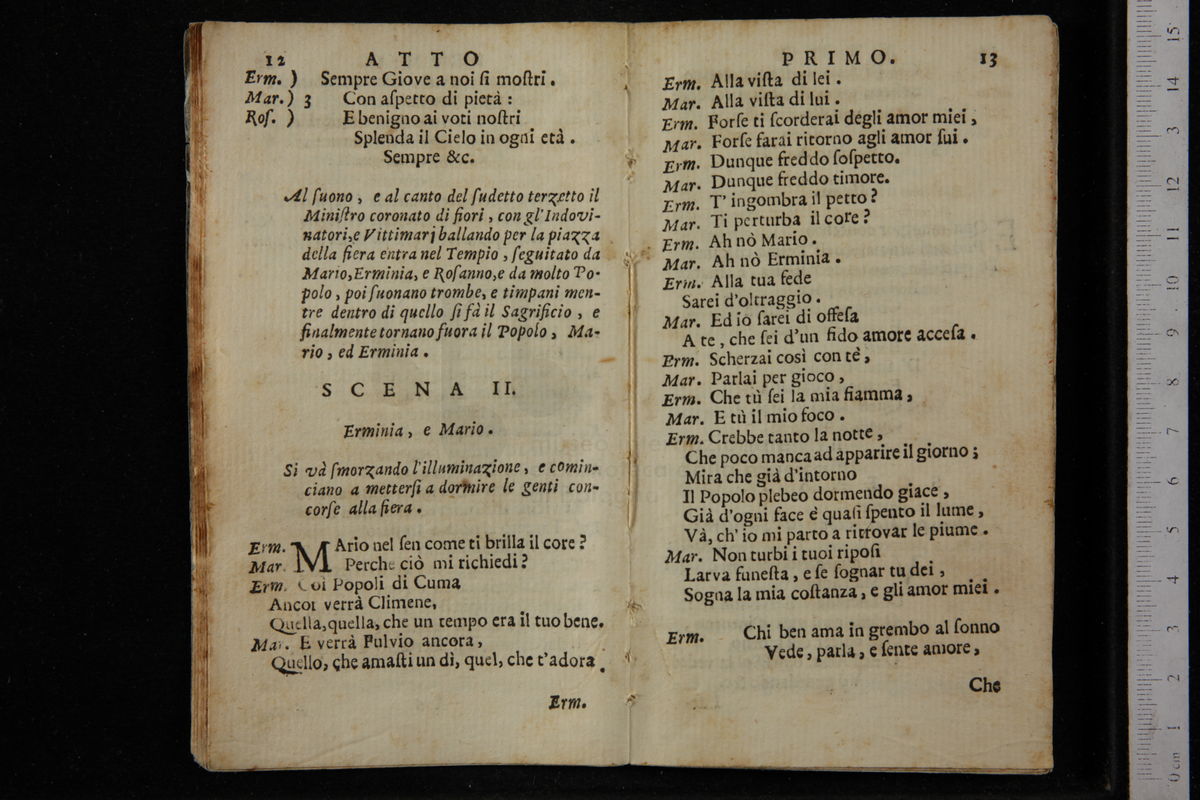 12 ATTO
Erm. ) Sempre Giove a noi ſi moſtri.
Mar. ) 3 Con aſpetto di pietà :
Roſ. ) E benigno ai voti noſtri
Splenda il Cielo in ogni età .
Sempre &c.
Al ſuono , e al canto del ſudetto terzetto il
Miniſtro coronato di fiori , con gl'Indovi-
natori,e Vittimarj ballando per la piazza
della fiera entra nel Tempio , ſeguitato da
Mario,Erminia, e Roſanno,e da molto Po-
polo , poi ſuonano trombe, e timpani men-
tre dentro di quello ſi fà il Sagrificio , e
finalmente tornano fuora il Popolo , Ma-
rio , ed Erminia .
SCENA II.
Erminia , e Mario .
Si và ſmorzando l'illuminazione , e comin-
ciano a metterſi a dormire le genti con-
corſe alla fiera .
Erm. MArio nel ſen come ti brilla il core ?
Mar. Perche ciò mi richiedi ?
Erm. Coi Popoli di Cuma
Ancor verrà Climene,
Quella,quella, che un tempo era il tuo bene.
Mar. E verrà Fulvio ancora ,
Quello, che amaſti un dì, quel, che t'adora .
Erm.
PRIMO. 13
Erm. Alla viſta di lei .
Mar. Alla viſta di lui .
Erm. Forſe ti ſcorderai degli amor miei ,
Mar. Forſe farai ritorno agli amor ſui .
Erm. Dunque freddo ſoſpetto.
Mar. Dunque freddo timore.
Erm. T' ingombra il petto ?
Mar. Ti perturba il core ?
Erm. Ah nò Mario .
Mar. Ah nò Erminia .
Erm. Alla tua fede
Sarei d'oltraggio .
Mar. Ed io ſarei di offeſa
A te , che ſei d'un fido amore acceſa .
Erm. Scherzai così con tè ,
Mar. Parlai per gioco ,
Erm. Che tù ſei la mia fiamma ,
Mar. E tù il mio foco .
Erm. Crebbe tanto la notte ,
Che poco manca ad apparire il giorno ;
Mira che già d'intorno
Il Popolo plebeo dormendo giace ,
Già d'ogni face è quaſi ſpento il lume ,
Và, ch' io mi parto a ritrovar le piume .
Mar. Non turbi i tuoi ripoſi
Larva funeſta , e ſe ſognar tu dei ,
Sogna la mia coſtanza , e gli amor miei .
Erm. Chi ben ama in grembo al ſonno
Vede , parla , e ſente amore ,
Che
15
14
3
12
11
10
9
8
7
6
5
4
3
2
1
0 cm